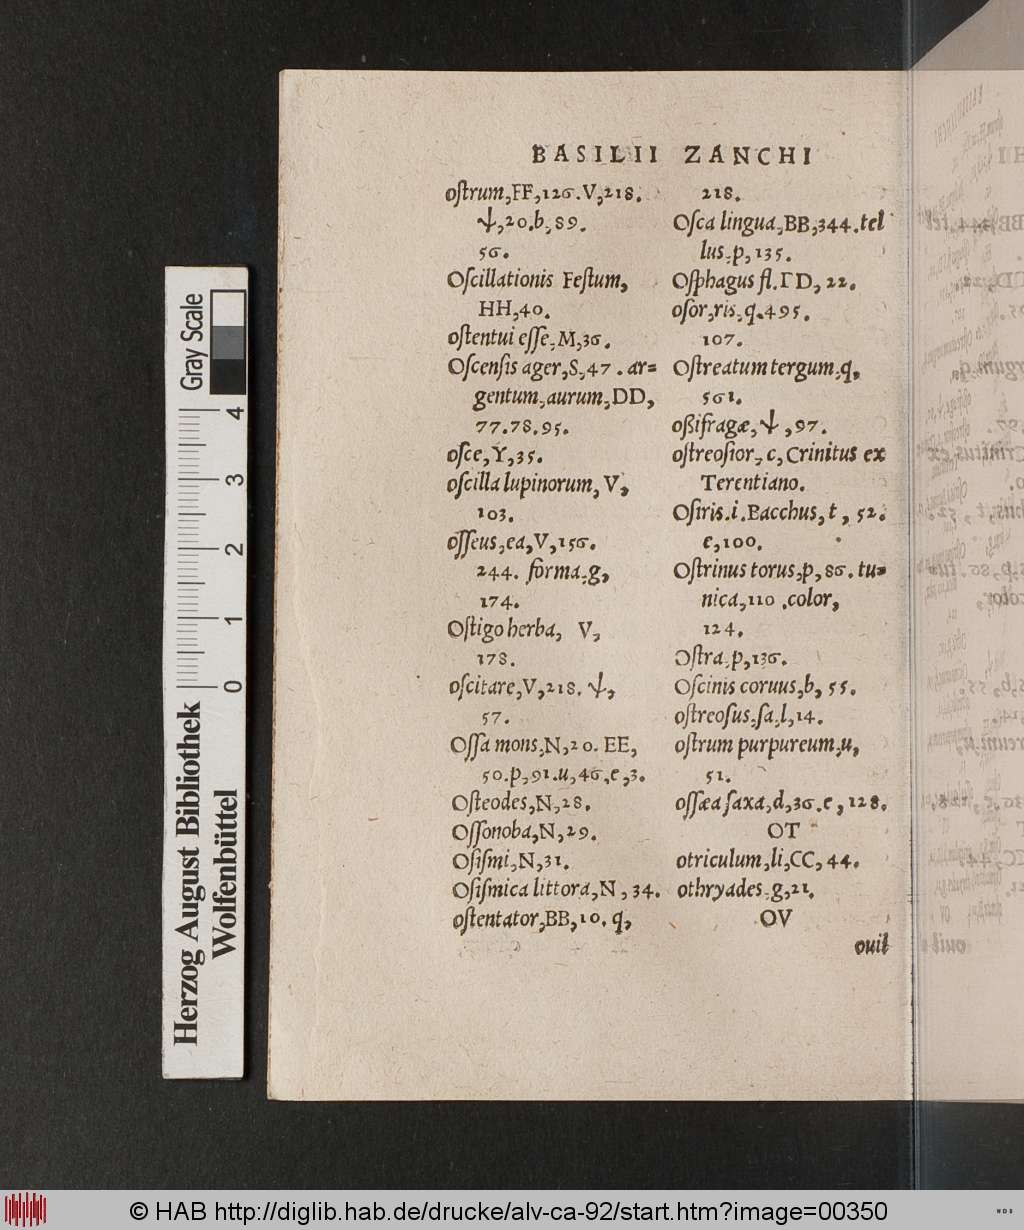 BASILII ZANCHI
oſtrum,FF,126.V,218.
Ψ,20.b,89.
56.
Oſcillationis Feſtum,
HH,40.
oſtentui eſſe,M,36.
Oſcenſis ager,S,47. ar=
gentum,aurum,DD,
77.78.95.
oſce,Y,35.
oſcilla lupinorum, V,
103.
oſſeus,ea,V,156.
244. forma,g,
174.
Oſtigo herba, V,
178.
oſcitare,V,218. Ψ,
57.
Oſſa mons,N,20. EE,
50.p,91.u,46,e,3.
Oſteodes,N,28.
Oſſonoba,N,29.
Oſiſmi,N,31.
Oſiſmica littora,N, 34.
oſtentator,BB,10. q,
218.
Oſca lingua,BB,344.tel
lus,p,135.
Oſphagus fl.ΓD, 22.
oſor,ris,q.495.
107.
Oſtreatum tergum,q,
561.
oßifragæ,Ψ,97.
oſtreoſior,c,Crinitus ex
Terentiano.
Oſiris.i.Bacchus,t, 52.
e,100.
Oſtrinus torus,p,86. tu=
nica,110.color,
124.
Oſtra,p,136.
Oſcinis coruus,b, 55.
oſtreoſus,ſa,l,14.
oſtrum purpureum,u,
51.
oſſæa ſaxa,d,36.e, 128.
OT
otriculum,li,CC, 44.
othryades,g,21.
OV
ouil
Gray Scale
0 1 2 3 4
Herzog August Bibliothek
Wolfenbüttel
© HAB http://diglib.hab.de/drucke/alv-ca-92/start.htm?image=00350